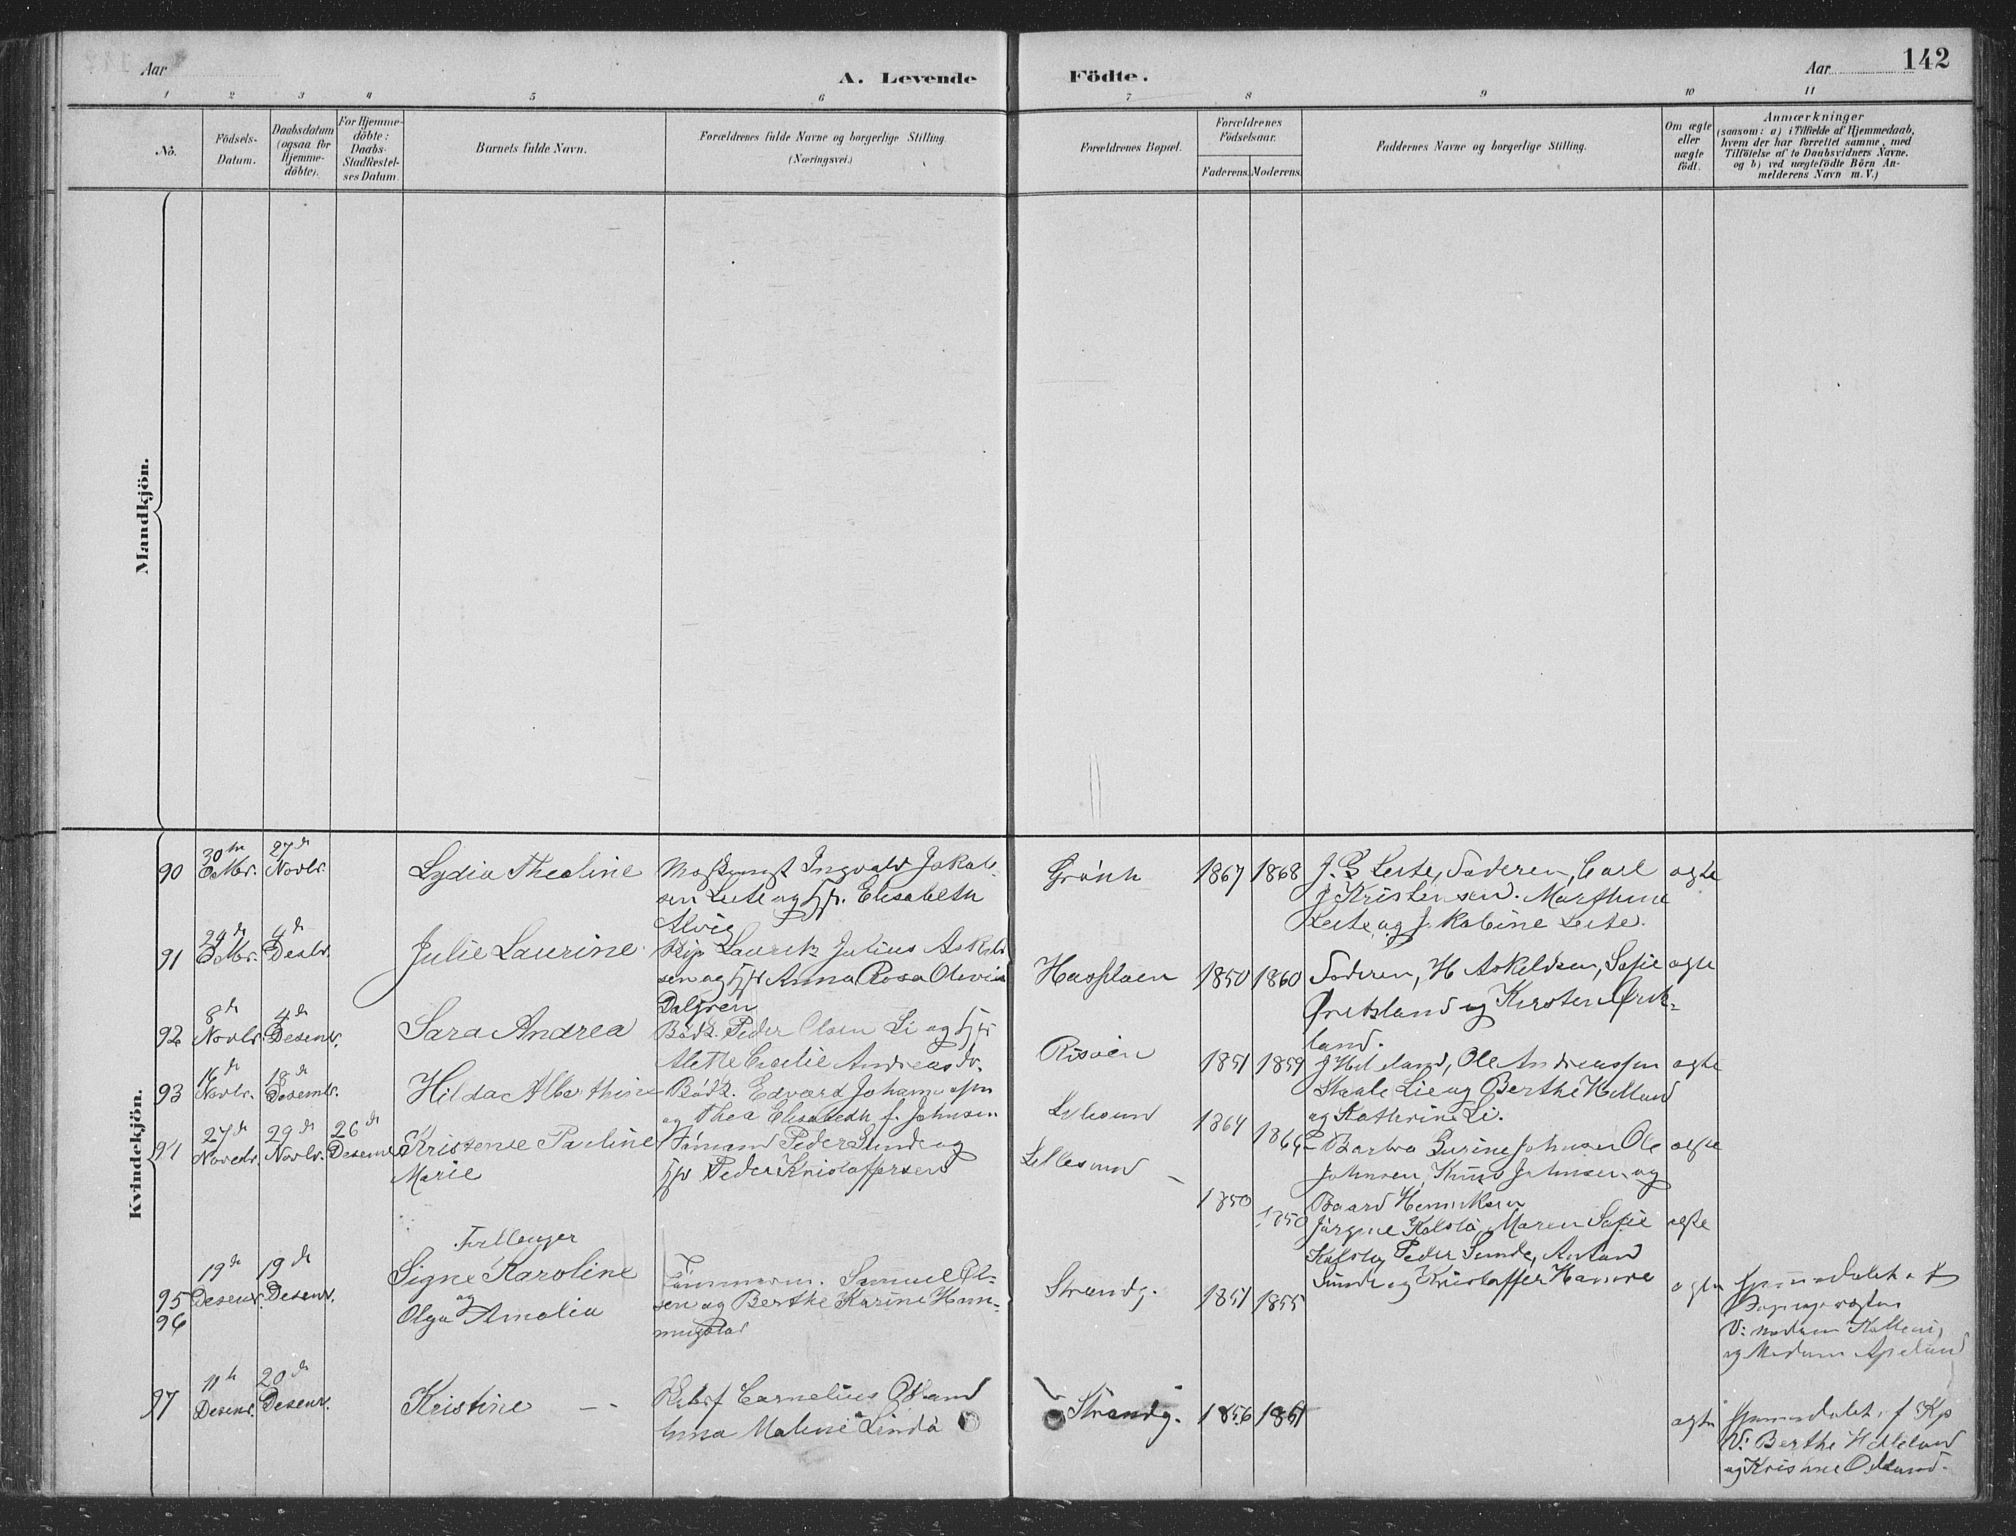 142
Aar
A. Levende Födte.
Aar
1 2 3 4 5 6 7 8 9 10 11
No.
Födsels-
Datum.
Daabsdatum
(ogsaa for
Hjemme-
döbte).
For Hjemme-
döbte:
Daabs-
Stadfæstel-
ses Datum.
Barnets fulde Navn.
Forældrenes fulde Navne og borgerlige Stilling.
(Næringsvei.)
Forældrenes Bopæl.
Forældrenes
Födselsaar.
Faderens. Moderens.
Faddernes Navne og borgerlige Stilling.
Om ægte
eller
uægte
födt.
Anmærkninger
(saasom: a) i Tilfælde af Hjemmedaab,
hvem der har forrettet samme, med
Tilföielse af to Daabsvidners Navne.
og b) ved uægtefödte Börn An-
melderens Navn m. V.)
Mandkjön.
Kvindekjön.
90
30te
27de
Novbr.
Lydia Thealine
Ingvald Jakob-
sen Leite og Elisabeth
Alvig
1867 1868
J. Leite, Faderen, Carl
J Kristensen. Marthine
Leite og Jakobine Leite.
ægte
91
29de
4de
Julie Laurine
Laurits Julius Askild-
sen og Anna Rosa Olevia
Dalgren
1850 1860
Faderen, H Askeldsen, Sofie
og Kirsten
land.
ægte
92
8de
Novbr.
4de
Desembr.
Sara Andrea
Bødk. Peder Olsen Li og
Alette Cecilie Andreasdr.
Risøen
1851 1859
Ole Andreassen
Lie og Berthe Helland
og Kathrine Li.
ægte
93
16de
Novbr.
18de
Desembr.
Hilda Alberthine
Bødk. Edvard Johannessen
og Thea Elisabeth f. Johnsen
Lillesund
1864
Barbra Gurine Johnsen Ole
Johnsen, Knut Johnsen og
Baard Henriksen
ægte
94
27de
Novebr.
29de
Novbr.
26de
Desembr.
Kristense Pauline
Marie
Tømmand Peder Sunde og
Peder Kristoffersen
Lillesund
1850 1850
Jürgine Kolstø, Maren Sofie
Kolstø Peder Sunde, Anton
Sunde og Kristoffer Hamre
ægte
95
96
19de
Desenr.
19de
Desenr.
Tvillinger
Signe Karoline
og
Olga Amalia
Tømmerm. Samuel Ol-
sen og Berthe Karine Hem-
mingstad
Strandg.
1851 1855
ægte
Hjemmedøbt af
V: madam
og Madam
97
11te
Desenr.
20de
Desenr.
Kristine
Cornelius Økland
Anna Malene Lindø
Strandg.
1856 1861
ægte
Hjemmedøbt af Kp
V: Berthe Helleland
og Kristine Økland.